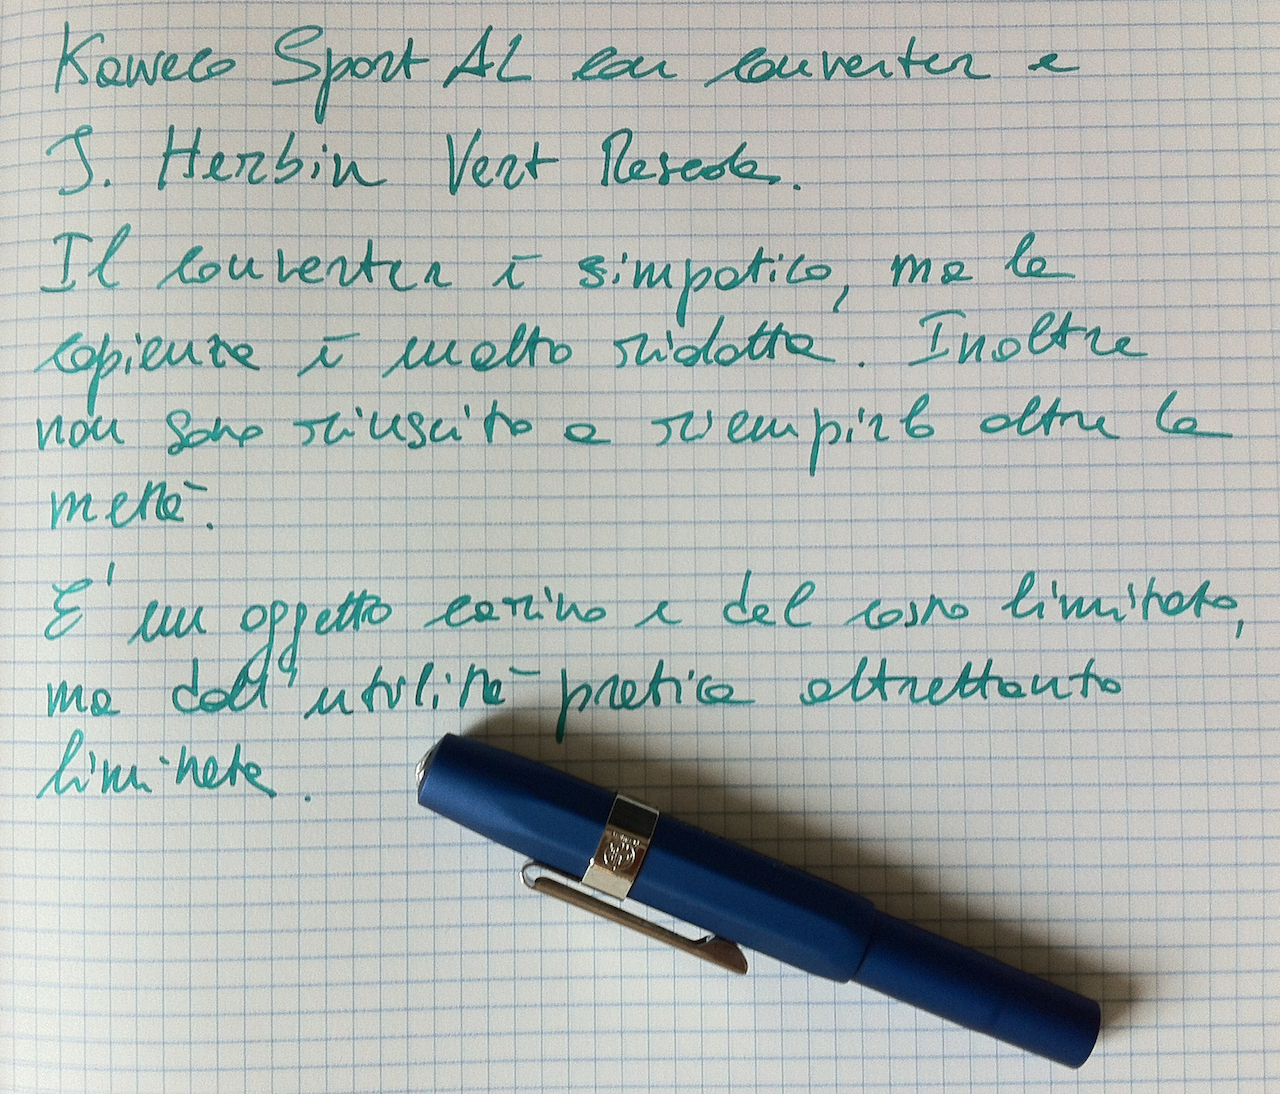 Kaweco Sport AL con converter e
J. Herbin Vert Reseda.
Il converter è simpatico, ma la
capienza è molto ridotta. Inoltre
non sono riuscito a riempirlo oltre la
metà.
E' un oggetto carino e dal costo limitato,
ma dall'utilità pratica altrettanto
limitata.